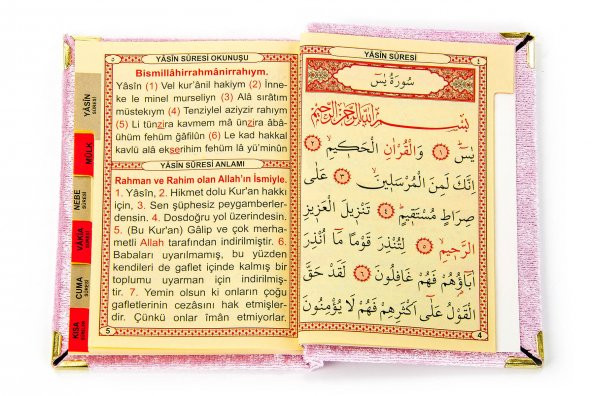 YÂSİN SÛRESİ OKUNUŞU
Bismillâhirrahmânirrahıym.
Yâsîn (1) Vel kur'ânil hakiym (2) İnne-
ke le minel murseliyn (3) Alâ sırâtım
müstekıym (4) Tenziylel aziyzir rahıym
(5) Li tünzira kavmem mâ ünzira âbâ-
ühüm fehüm ğâfilûn (6) Le kad hakkal
kavlü alâ ekserihim fehüm lâ yü'minûn
YÂSİN SÛRESİ ANLAMI
Rahman ve Rahim olan Allah'ın İsmiyle.
1. Yâsîn, 2. Hikmet dolu Kur'an hakkı
için, 3. Sen şüphesiz peygamberler-
densin. 4. Dosdoğru yol üzerindesin.
5. (Bu Kur'an) Gâlip ve çok merha-
metli Allah tarafından indirilmiştir. 6.
Babaları uyarılmamış, bu yüzden
kendileri de gaflet içinde kalmış bir
toplumu uyarman için indirilmiş-
tir. 7. Yemin olsun ki onların çoğu
gafletlerinin cezâsını hak etmişler-
dir. Çünkü onlar îmân etmiyorlar.
5
YÂSİN SÛRESİ
MÜLK
NEBE SÛRESİ
VÂKIA
CUMA SÛRESİ
KISA
YÂSİN SÛRESİ
سُورَةُ يٰسٓ
بِسْمِ اللّٰهِ الرَّحْمٰنِ الرَّحِيمِ
يٰسٓ ﴿١﴾ وَالْقُرْاٰنِ الْحَكِيمِ ﴿٢﴾
اِنَّكَ لَمِنَ الْمُرْسَلِينَ ﴿٣﴾ عَلٰى
صِرَاطٍ مُسْتَقِيمٍ ﴿٤﴾ تَنْزِيلَ الْعَزِيزِ
الرَّحِيمِ ﴿٥﴾ لِتُنْذِرَ قَوْمًا مَٓا اُنْذِرَ
اٰبَٓاؤُهُمْ فَهُمْ غَافِلُونَ ﴿٦﴾ لَقَدْ حَقَّ
الْقَوْلُ عَلٰٓى اَكْثَرِهِمْ فَهُمْ لَا يُؤْمِنُونَ
4